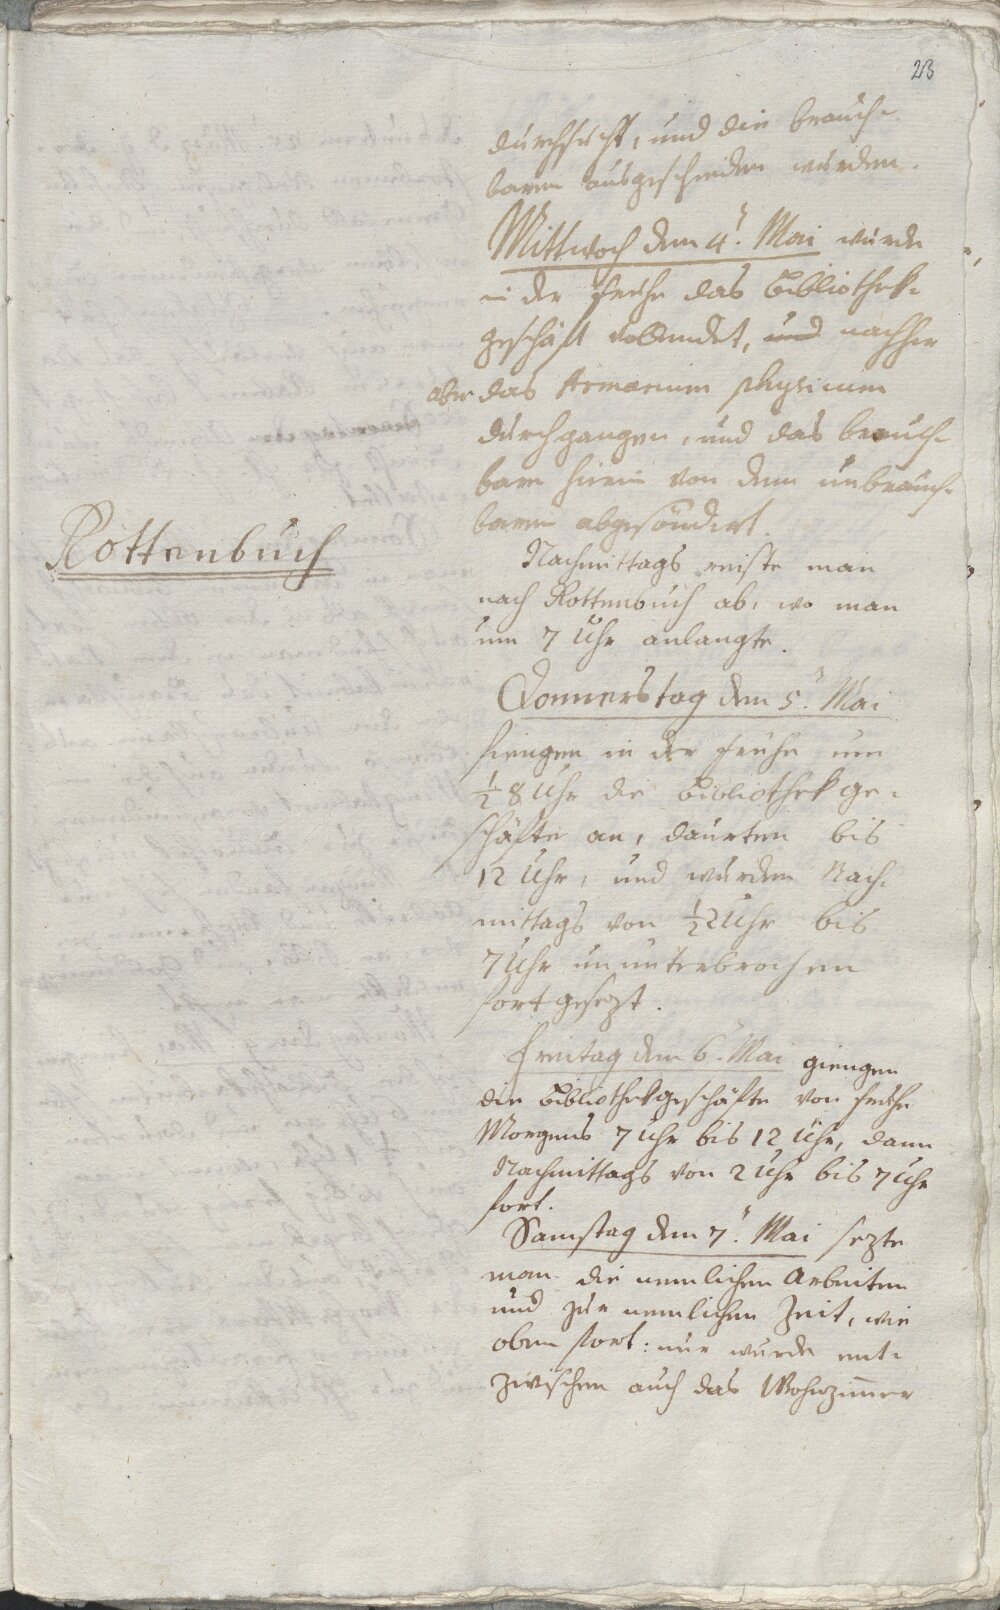 23
durchsucht, und die brauch-
baren ausgeschieden wurden.
Mittwoch dem 4. Mai wurde
in der Frühe das Bibliothek-
geschäft vollendet, und nachher
aber das Armarium physicum
durchgangen, und das brauch-
bare hierin von dem unbrauch-
baren abgesöndert.
Rottenbuch
Nachmittags reiste man
nach Rottenbuch ab, wo man
um 7 Uhr anlangte.
Donnerstag dem 5. Mai
fiengen in der Frühe um
½ 8 Uhr die Bibliothekge-
schäfte an, daurten bis
12 Uhr, und wurden Nach-
mittags von ½ 2 Uhr bis
7 Uhr ununterbrochen
fortgesezt.
Freitag dem 6. Mai giengen
die Bibliothekgeschäfte von frühe
Morgens 7 Uhr bis 12 Uhr, dann
Nachmittags von 2 Uhr bis 7 Uhr
fort.
Samstag dem 7. Mai sezte
man die nemlichen Arbeiten
und zur nemlichen Zeit, wie
oben fort: nur wurde ent-
zwischen auch das Wohnzimmer